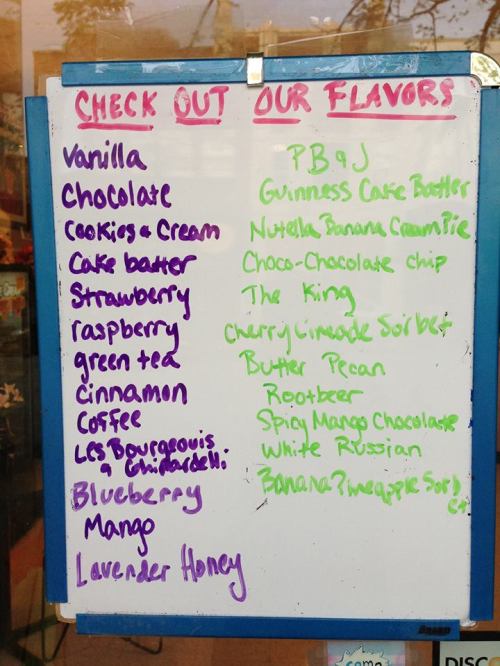 CHECK OUT OUR FLAVORS
Vanilla
Chocolate
Cookies & Cream
Cake batter
Strawberry
raspberry
green tea
cinnamon
Coffee
Les Bourgeouis
& Ghirardelli
Blueberry
Mango
Lavender Honey
PB & J
Guinness Cake Batter
Nutella Banana Cream Pie
Choco-Chocolate chip
The King
Cherry Limeade Sorbet
Butter Pecan
Rootbeer
Spicy Mango Chocolate
White Russian
Banana Pineapple Sorb
et
DISC